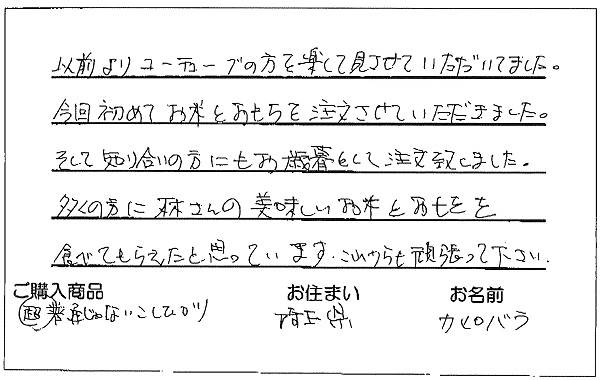 以前よりユーチューブの方を楽して見させていただいてました。
今回初めてお米とおもちを注文させていただきました。
そして知り合いの方にもお歳暮をして注文致しました。
多くの方に林さんの美味しいお米とおもちを
食べてもらえたと思っています。これからも頑張って下さい。
ご購入商品 お住まい お名前
じゃないこしひかり 埼玉県 バラ